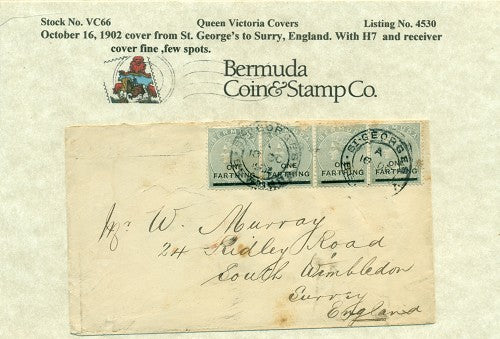 Stock No. VC66 Queen Victoria Covers Listing No. 4530
October 16, 1902 cover from St. George's to Surry, England. With H7 and receiver
cover fine ,few spots.
Bermuda
Coin&Stamp Co.
ONE FARTHING ONE FARTHING ONE FARTHING ONE FARTHING
ST. GEORGES
A
W. Murray
24 Ridley Road
South Wimbledon
Surrey
England